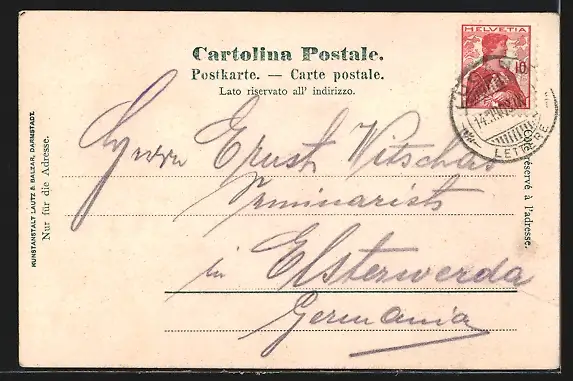 Cartolina Postale.
Postkarte. — Carte postale.
Lato riservato all' indirizzo.
HELVETIA
10
LETTERE
Herrn Ernst Nitschas
Seminarists
in Elsterwerda
Germania
KUNSTANSTALT LAUTZ & BALZAR, DARMSTADT.
Nur für die Adresse.
Côté réservé à l'adresse.